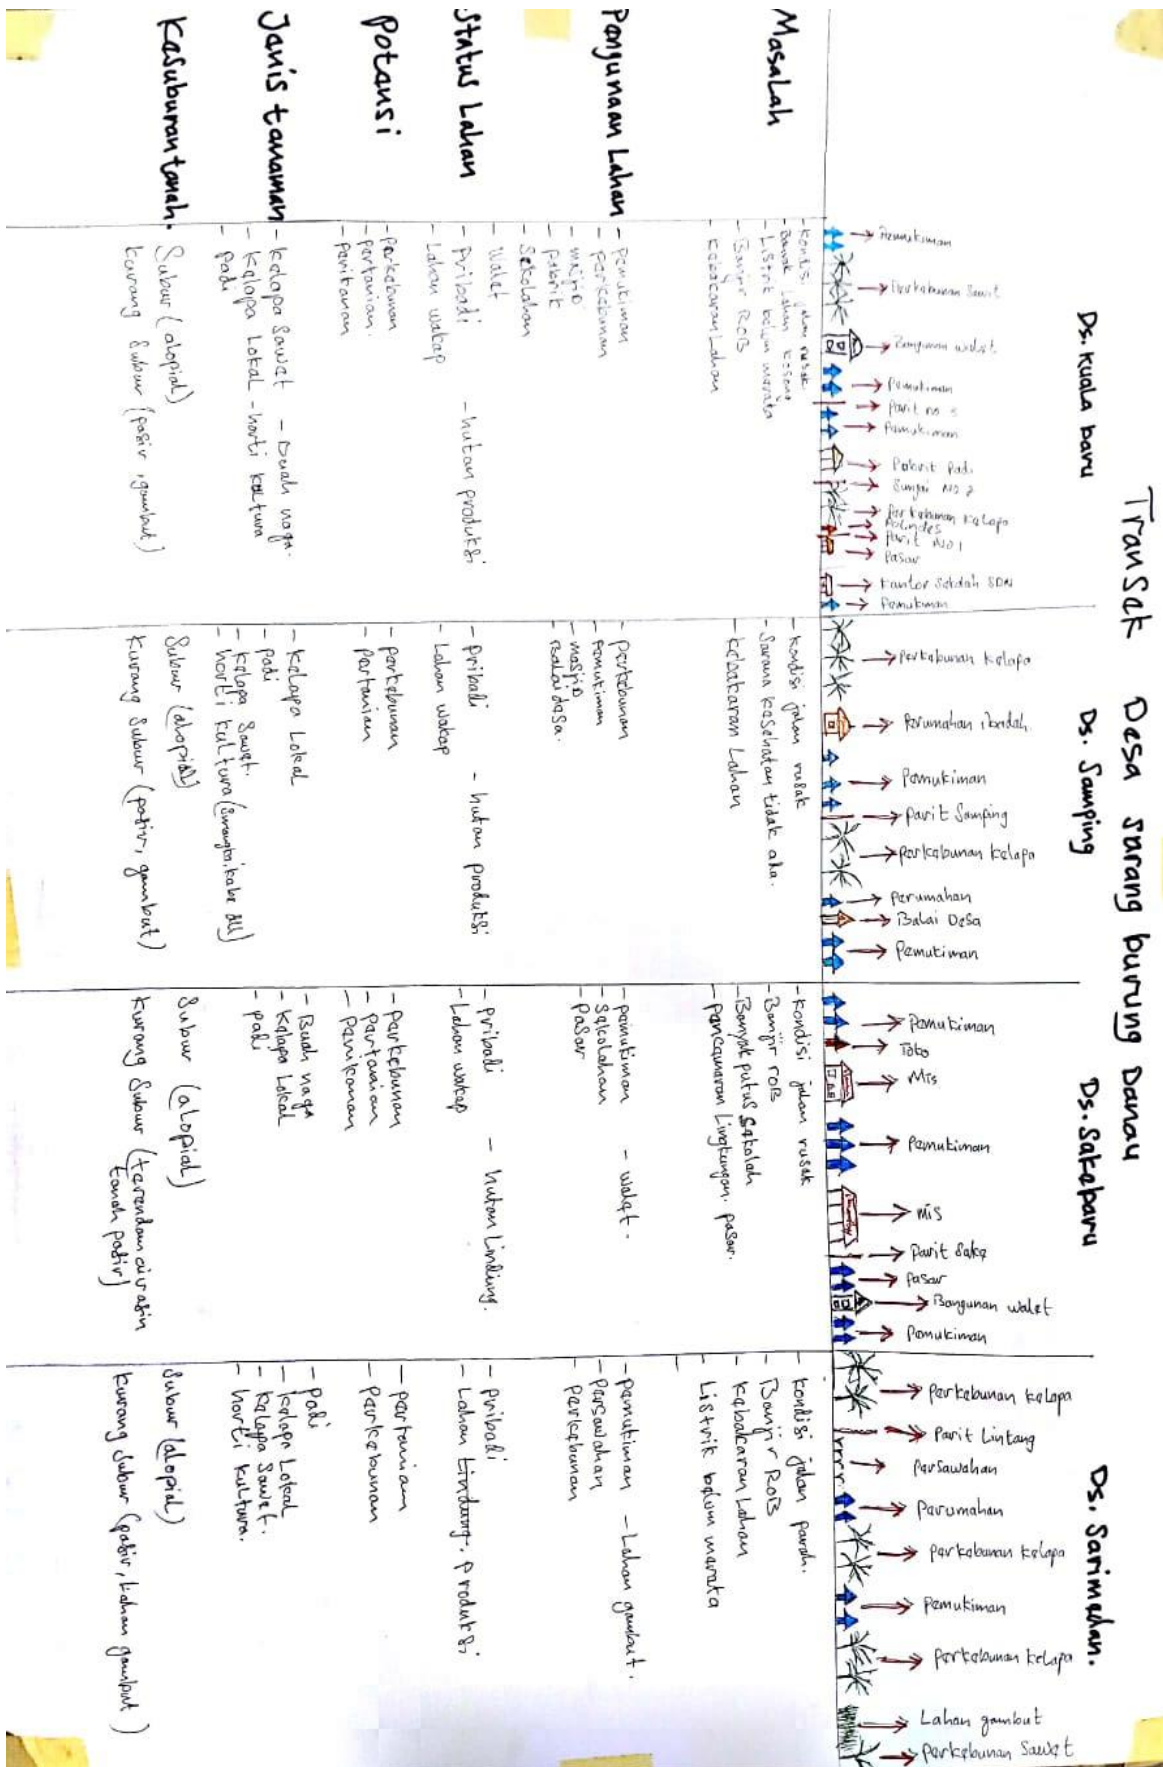 Transek Desa sarang burung Danau
Ds. Kuala baru
Ds. Samping
Ds. Sakabaru
Ds. Sarimedan.
Pemukiman
Perkebunan Sawit
Bangunan walet
Pemukiman
Parit no 3
Pemukiman
Pabrik Padi
Sungai No 2
Perkebunan Kelapa
Polindes
Parit No 1
Pasar
Kantor Sekolah SDN
Pemukiman
Perkebunan Kelapa
Perumahan ibadah
Pemukiman
Parit Samping
Perkebunan Kelapa
Perumahan
Balai Desa
Pemukiman
Pemukiman
Toko
Mis
Pemukiman
mis
Parit Saka
Pasar
Bangunan walet
Pemukiman
Perkebunan Kelapa
Parit Lintang
Persawahan
Perumahan
Perkebunan Kelapa
Pemukiman
Perkebunan Kelapa
Lahan gambut
Perkebunan Sawet
Masalah
- Kondisi jalan rusak
- Banyak Lahan kosong
- Listrik belum merata
- Banjir ROB
- Kebakaran Lahan
- Kondisi jalan rusak
- Sarana Kesehatan tidak ada.
- Kebakaran Lahan
- Kondisi jalan rusak
- Banjir ROB
- Banyak putus Sekolah
- Pencemaran Lingkungan. pasar.
- Kondisi jalan parah.
- Banjir RoB
- Kebakaran Lahan
- Listrik belum merata
Pengunaan Lahan
- Pemukiman
- perkebunan
- masjid
- Pabrik
- Sekolahan
- Walet
- perkebunan
- Pemukiman
- masjid
- Balai desa.
- pemukiman - walet.
- Sekolahan
- Pasar
- pemukiman - Lahan gambut.
- Persawahan
- perkebunan
Status Lahan
- Pribadi - hutan produksi
- Lahan wakap
- pribadi - hutan produksi
- Lahan wakap
- pribadi - hutan Lindung.
- Lahan wakap
- pribadi
- Lahan Lindung, produksi
Potensi
- Perkebunan
- pertanian.
- perikanan
- perkebunan
- pertanian
- perkebunan
- pertanian
- perikanan
- pertanian
- perkebunan
Jenis tanaman
- Kelapa Sawet - Buah naga.
- Kelapa Lokal - horti kultura
- padi
- Kelapa Lokal
- padi
- Kelapa Sawet.
- horti kultura (Semangka, kabe dll)
- Buah naga
- Kelapa Lokal
- padi
- padi
- Kelapa Lokal
- Kelapa Sawet.
- horti kultura.
Kesuburan tanah.
Subur (alopial)
Kurang Subur (pasir, gambut)
Subur (alopial)
Kurang Subur (pasir, gambut)
Subur (alopial)
Kurang Subur (terendam air asin
tanah pasir)
Subur (alopial)
Kurang Subur (pasir, Lahan gambut)